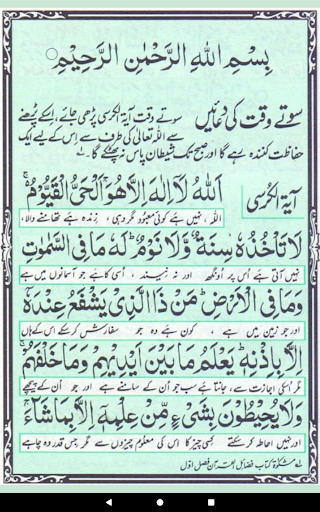 بِسْمِ اللهِ الرَّحْمٰنِ الرَّحِیْمِ
سوتے وقت کی دعائیں
سوتے وقت آیۃ الکرسی پڑھی جائے، اسکے پڑھنے
سے اللہ تعالیٰ کی طرف سے اس کے لیے ایک
حفاظت کنندہ رہے گا اور صبح تک شیطان پاس نہ پھٹکے گا۔ ؎۱
آیۃ الکرسی
اَللهُ لَآ اِلٰهَ اِلَّا هُوَ ۚ اَلْحَیُّ الْقَیُّوْمُ ۚ
اللہ، نہیں ہے کوئی معبود مگر وہی، زندہ ہے تھامنے والا،
لَا تَاْخُذُهٗ سِنَةٌ وَّلَا نَوْمٌ ؕ لَهٗ مَا فِی السَّمٰوٰتِ
نہیں آتی ہے اُس پر اُونگھ اور نہ نیند، اُسی کا ہے جو آسمانوں میں ہے
وَمَا فِی الْاَرْضِ ؕ مَنْ ذَا الَّذِیْ یَشْفَعُ عِنْدَهٗۤ
اور جو زمین میں ہے، کون ہے وہ جو سفارش کرسکے اس کے ہاں
اِلَّا بِاِذْنِهٖ ؕ یَعْلَمُ مَا بَیْنَ اَیْدِیْهِمْ وَمَا خَلْفَهُمْ ۚ
مگر اُسکی اجازت سے، جانتا ہے سب جو اُن کے سامنے ہے اور جو اُن کے پیچھے
وَلَا یُحِیْطُوْنَ بِشَیْءٍ مِّنْ عِلْمِهٖۤ اِلَّا بِمَا شَآءَ ۚ
اور نہیں احاطہ کرسکتے کسی چیز کا اس کی معلوم چیزوں سے مگر جس قدر وہ چاہے
؎۱ مشکوٰۃ کتاب فضائل القرآن فصل اوّل